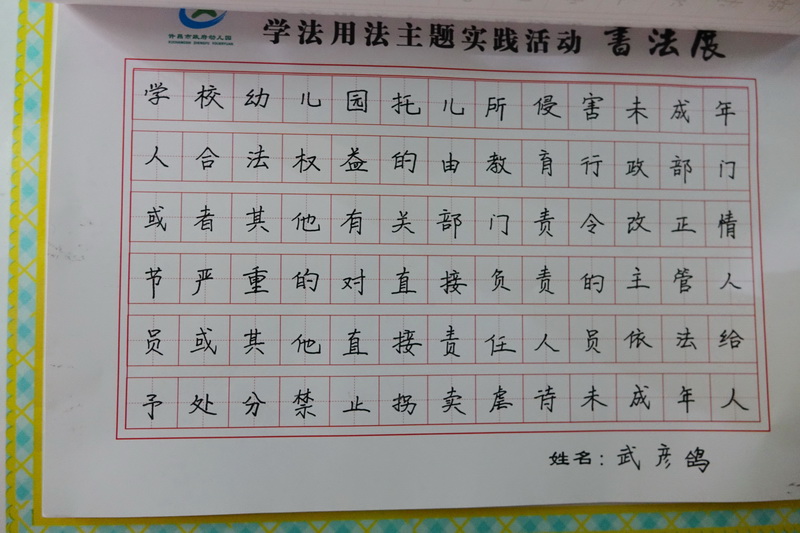 许昌市政府幼儿园
学法用法主题实践活动 书法展
学校幼儿园托儿所侵害未成年
人合法权益的由教育行政部门
或者其他有关部门责令改正情
节严重的对直接负责的主管人
员或其他直接责任人员依法给
予处分禁止拐卖虐待未成年人
姓名：武彦鸽